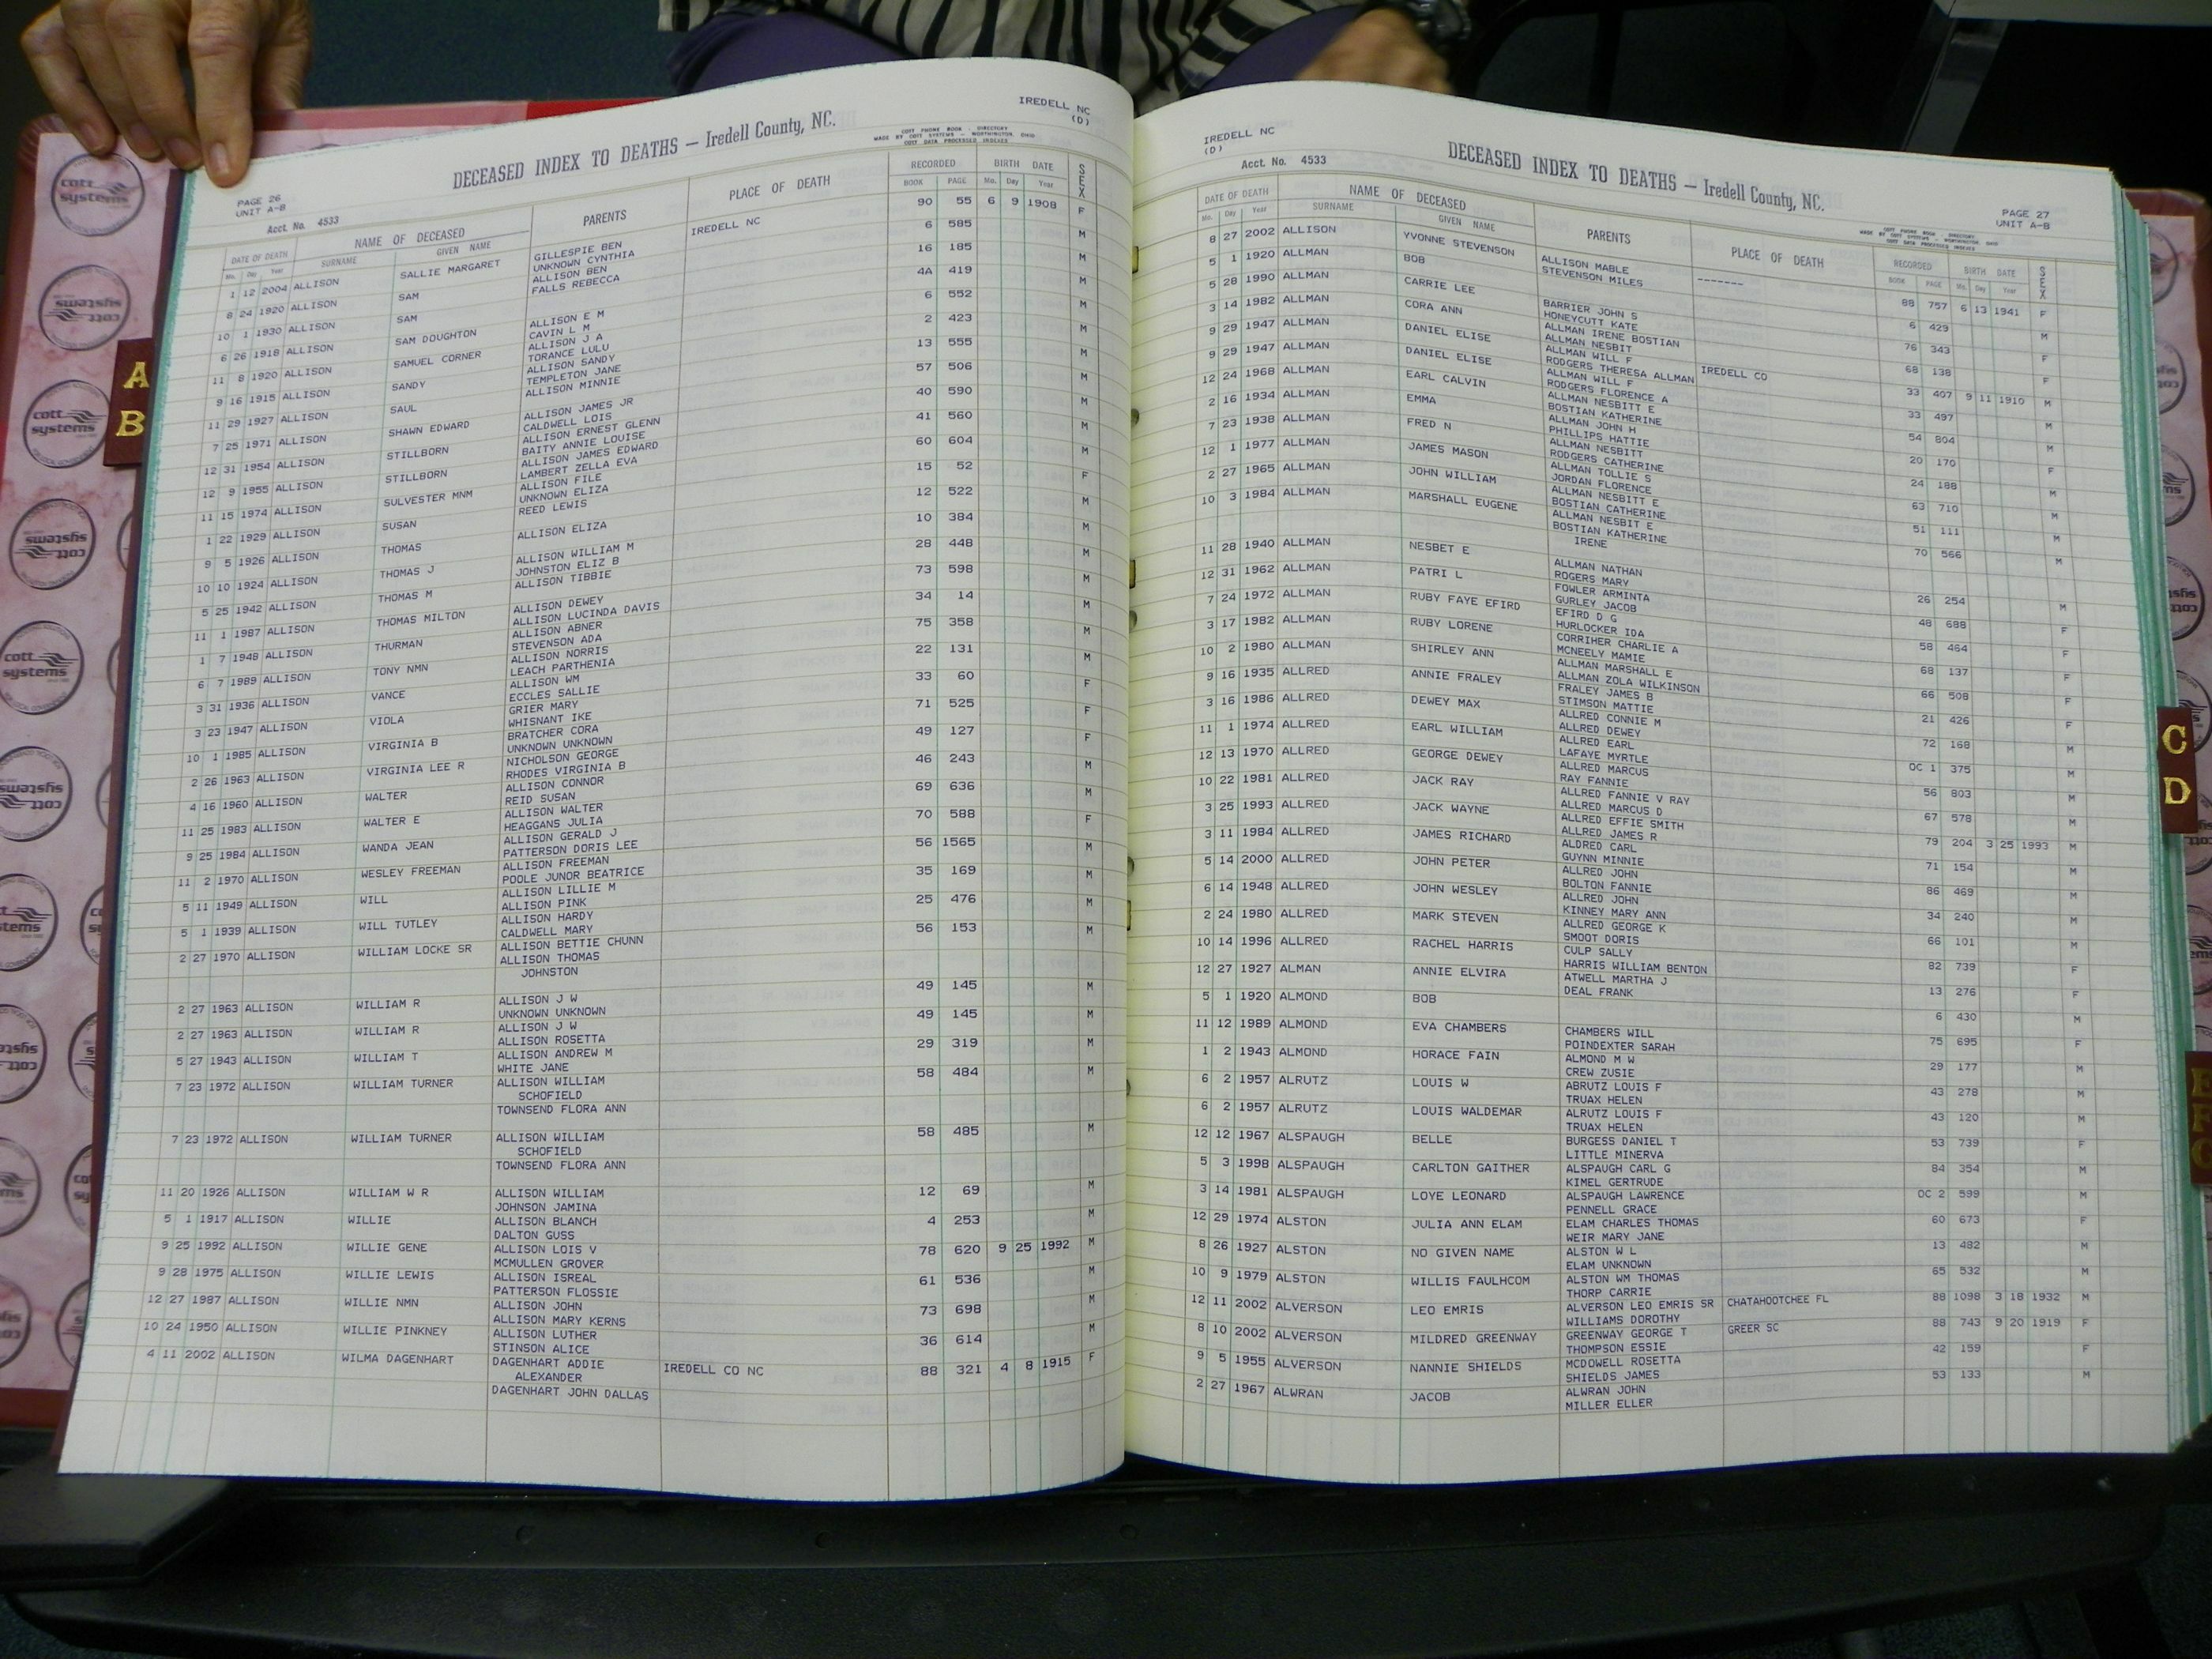 IREDELL NC
(D)
DECEASED INDEX TO DEATHS — Iredell County, NC.
COTT PHONE BOOK - DIRECTORY
MADE BY COTT SYSTEMS - WORTHINGTON, OHIO
COTT DATA PROCESSED INDEXES
PAGE 26
UNIT A-B
Acct. No. 4533
DATE OF DEATH NAME OF DECEASED PARENTS PLACE OF DEATH RECORDED BIRTH DATE SEX
Mo. Day Year SURNAME GIVEN NAME BOOK PAGE Mo. Day Year
1 12 2004 ALLISON SALLIE MARGARET GILLESPIE BEN IREDELL NC 90 55 6 9 1908 F
UNKNOWN CYNTHIA
8 24 1920 ALLISON SAM ALLISON BEN 6 585 M
FALLS REBECCA
10 1 1930 ALLISON SAM 16 185 M
6 26 1918 ALLISON SAM DOUGHTON ALLISON E M 4A 419 M
CAVIN L M
11 8 1920 ALLISON SAMUEL CORNER ALLISON J A 6 552 M
TORANCE LULU
9 16 1915 ALLISON SANDY ALLISON SANDY 2 423 M
TEMPLETON JANE
11 29 1927 ALLISON SAUL ALLISON MINNIE 13 555 M
7 25 1971 ALLISON SHAWN EDWARD ALLISON JAMES JR 57 506 M
CALDWELL LOIS
12 31 1954 ALLISON STILLBORN ALLISON ERNEST GLENN 40 590 M
BAITY ANNIE LOUISE
12 9 1955 ALLISON STILLBORN ALLISON JAMES EDWARD 41 560 M
LAMBERT ZELLA EVA
11 15 1974 ALLISON SULVESTER MNM ALLISON FILE 60 604 M
UNKNOWN ELIZA
1 22 1929 ALLISON SUSAN REED LEWIS 15 52 F
9 5 1926 ALLISON THOMAS ALLISON ELIZA 12 522 M
10 10 1924 ALLISON THOMAS J ALLISON WILLIAM M 10 384 M
JOHNSTON ELIZ B
5 25 1942 ALLISON THOMAS M ALLISON TIBBIE 28 448 M
11 1 1987 ALLISON THOMAS MILTON ALLISON DEWEY 73 598 M
ALLISON LUCINDA DAVIS
1 7 1948 ALLISON THURMAN ALLISON ABNER 34 14 M
STEVENSON ADA
6 7 1989 ALLISON TONY NMN ALLISON NORRIS 75 358 M
LEACH PARTHENIA
3 31 1936 ALLISON VANCE ALLISON WM 22 131 M
ECCLES SALLIE
3 23 1947 ALLISON VIOLA GRIER MARY 33 60 F
WHISNANT IKE
10 1 1985 ALLISON VIRGINIA B BRATCHER CORA 71 525 F
UNKNOWN UNKNOWN
2 26 1963 ALLISON VIRGINIA LEE R NICHOLSON GEORGE 49 127 F
RHODES VIRGINIA B
4 16 1960 ALLISON WALTER ALLISON CONNOR 46 243 M
REID SUSAN
11 25 1983 ALLISON WALTER E ALLISON WALTER 69 636 M
HEAGGANS JULIA
9 25 1984 ALLISON WANDA JEAN ALLISON GERALD J 70 588 F
PATTERSON DORIS LEE
11 2 1970 ALLISON WESLEY FREEMAN ALLISON FREEMAN 56 1565 M
POOLE JUNOR BEATRICE
5 11 1949 ALLISON WILL ALLISON LILLIE M 35 169 M
ALLISON PINK
5 1 1939 ALLISON WILL TUTLEY ALLISON HARDY 25 476 M
CALDWELL MARY
2 27 1970 ALLISON WILLIAM LOCKE SR ALLISON BETTIE CHUNN 56 153 M
ALLISON THOMAS
JOHNSTON
2 27 1963 ALLISON WILLIAM R ALLISON J W 49 145 M
UNKNOWN UNKNOWN
2 27 1963 ALLISON WILLIAM R ALLISON J W 49 145 M
ALLISON ROSETTA
5 27 1943 ALLISON WILLIAM T ALLISON ANDREW M 29 319 M
WHITE JANE
7 23 1972 ALLISON WILLIAM TURNER ALLISON WILLIAM 58 484 M
SCHOFIELD
TOWNSEND FLORA ANN
7 23 1972 ALLISON WILLIAM TURNER ALLISON WILLIAM 58 485 M
SCHOFIELD
TOWNSEND FLORA ANN
11 20 1926 ALLISON WILLIAM W R ALLISON WILLIAM 12 69 M
JOHNSON JAMINA
5 1 1917 ALLISON WILLIE ALLISON BLANCH 4 253 M
DALTON GUSS
9 25 1992 ALLISON WILLIE GENE ALLISON LOIS V 78 620 9 25 1992 M
MCMULLEN GROVER
9 28 1975 ALLISON WILLIE LEWIS ALLISON ISREAL 61 536 M
PATTERSON FLOSSIE
12 27 1987 ALLISON WILLIE NMN ALLISON JOHN 73 698 M
ALLISON MARY KERNS
10 24 1950 ALLISON WILLIE PINKNEY ALLISON LUTHER 36 614 M
STINSON ALICE
4 11 2002 ALLISON WILMA DAGENHART DAGENHART ADDIE IREDELL CO NC 88 321 4 8 1915 F
ALEXANDER
DAGENHART JOHN DALLAS
IREDELL NC
(D)
Acct. No. 4533
DECEASED INDEX TO DEATHS — Iredell County, NC.
COTT PHONE BOOK - DIRECTORY
MADE BY COTT SYSTEMS - WORTHINGTON, OHIO
COTT DATA PROCESSED INDEXES
PAGE 27
UNIT A-B
DATE OF DEATH NAME OF DECEASED PARENTS PLACE OF DEATH RECORDED BIRTH DATE SEX
Mo. Day Year SURNAME GIVEN NAME BOOK PAGE Mo. Day Year
8 27 2002 ALLISON YVONNE STEVENSON ALLISON MABLE ------- 88 757 6 13 1941 F
STEVENSON MILES
5 1 1920 ALLMAN BOB 6 429 M
5 28 1990 ALLMAN CARRIE LEE BARRIER JOHN S 76 343 F
HONEYCUTT KATE
3 14 1982 ALLMAN CORA ANN ALLMAN IRENE BOSTIAN IREDELL CO 68 138 F
ALLMAN NESBIT
9 29 1947 ALLMAN DANIEL ELISE ALLMAN WILL F 33 407 9 11 1910 M
RODGERS THERESA ALLMAN
9 29 1947 ALLMAN DANIEL ELISE ALLMAN WILL F 33 497 M
RODGERS FLORENCE A
12 24 1968 ALLMAN EARL CALVIN ALLMAN NESBITT E 54 804 M
BOSTIAN KATHERINE
2 16 1934 ALLMAN EMMA ALLMAN JOHN H 20 170 F
PHILLIPS HATTIE
7 23 1938 ALLMAN FRED N ALLMAN NESBITT 24 188 M
RODGERS CATHERINE
12 1 1977 ALLMAN JAMES MASON ALLMAN TOLLIE S 63 710 M
JORDAN FLORENCE
2 27 1965 ALLMAN JOHN WILLIAM ALLMAN NESBITT E 51 111 M
BOSTIAN CATHERINE
10 3 1984 ALLMAN MARSHALL EUGENE ALLMAN NESBIT E 70 566 M
BOSTIAN KATHERINE
IRENE
11 28 1940 ALLMAN NESBET E ALLMAN NATHAN 26 254 M
ROGERS MARY
12 31 1962 ALLMAN PATRI L FOWLER ARMINTA 48 688 F
GURLEY JACOB
7 24 1972 ALLMAN RUBY FAYE EFIRD EFIRD D G 58 464 F
HURLOCKER IDA
3 17 1982 ALLMAN RUBY LORENE CORRIHER CHARLIE A 68 137 F
MCNEELY MAMIE
10 2 1980 ALLMAN SHIRLEY ANN ALLMAN MARSHALL E 66 508 F
ALLMAN ZOLA WILKINSON
9 16 1935 ALLRED ANNIE FRALEY FRALEY JAMES B 21 426 F
STIMSON MATTIE
3 16 1986 ALLRED DEWEY MAX ALLRED CONNIE M 72 168 M
ALLRED DEWEY
11 1 1974 ALLRED EARL WILLIAM ALLRED EARL OC 1 375 M
LAFAYE MYRTLE
12 13 1970 ALLRED GEORGE DEWEY ALLRED MARCUS 56 803 M
RAY FANNIE
10 22 1981 ALLRED JACK RAY ALLRED FANNIE V RAY 67 578 M
ALLRED MARCUS D
3 25 1993 ALLRED JACK WAYNE ALLRED EFFIE SMITH 79 204 3 25 1993 M
ALLRED JAMES R
3 11 1984 ALLRED JAMES RICHARD ALDRED CARL 71 154 M
GUYNN MINNIE
5 14 2000 ALLRED JOHN PETER ALLRED JOHN 86 469 M
BOLTON FANNIE
6 14 1948 ALLRED JOHN WESLEY ALLRED JOHN 34 240 M
KINNEY MARY ANN
2 24 1980 ALLRED MARK STEVEN ALLRED GEORGE K 66 101 M
SMOOT DORIS
10 14 1996 ALLRED RACHEL HARRIS CULP SALLY 82 739 F
HARRIS WILLIAM BENTON
12 27 1927 ALMAN ANNIE ELVIRA ATWELL MARTHA J 13 276 F
DEAL FRANK
5 1 1920 ALMOND BOB 6 430 M
11 12 1989 ALMOND EVA CHAMBERS CHAMBERS WILL 75 695 F
POINDEXTER SARAH
1 2 1943 ALMOND HORACE FAIN ALMOND M W 29 177 M
CREW ZUSIE
6 2 1957 ALRUTZ LOUIS W ABRUTZ LOUIS F 43 278 M
TRUAX HELEN
6 2 1957 ALRUTZ LOUIS WALDEMAR ALRUTZ LOUIS F 43 120 M
TRUAX HELEN
12 12 1967 ALSPAUGH BELLE BURGESS DANIEL T 53 739 F
LITTLE MINERVA
5 3 1998 ALSPAUGH CARLTON GAITHER ALSPAUGH CARL G 84 354 M
KIMEL GERTRUDE
3 14 1981 ALSPAUGH LOYE LEONARD ALSPAUGH LAWRENCE OC 2 599 M
PENNELL GRACE
12 29 1974 ALSTON JULIA ANN ELAM ELAM CHARLES THOMAS 60 673 F
WEIR MARY JANE
8 26 1927 ALSTON NO GIVEN NAME ALSTON W L 13 482 M
ELAM UNKNOWN
10 9 1979 ALSTON WILLIS FAULHCOM ALSTON WM THOMAS 65 532 M
THORP CARRIE
12 11 2002 ALVERSON LEO EMRIS ALVERSON LEO EMRIS SR CHATAHOOTCHEE FL 88 1098 3 18 1932 M
WILLIAMS DOROTHY
8 10 2002 ALVERSON MILDRED GREENWAY GREENWAY GEORGE T GREER SC 88 743 9 20 1919 F
THOMPSON ESSIE
9 5 1955 ALVERSON NANNIE SHIELDS MCDOWELL ROSETTA 42 159 F
SHIELDS JAMES
2 27 1967 ALWRAN JACOB ALWRAN JOHN 53 133 M
MILLER ELLER
A
B
C
D
cott
systems